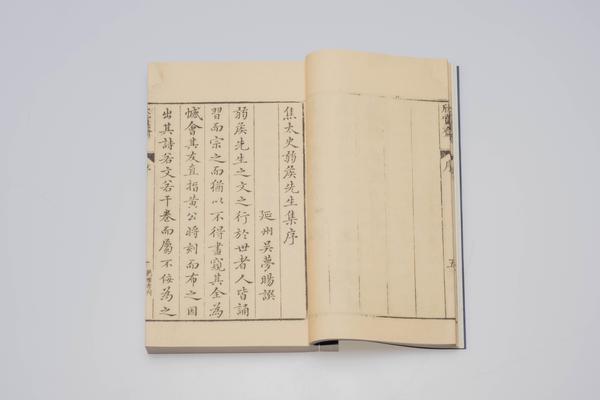 序
五
焦太史弱矦先生集序
延州吳夢暘譔
弱矦先生之文之行於世者人皆誦
習而宗之而猶以不得盡窺其全為
憾會其友直指黃公將刻而布之因
出其詩若文若干卷而屬不佞為之